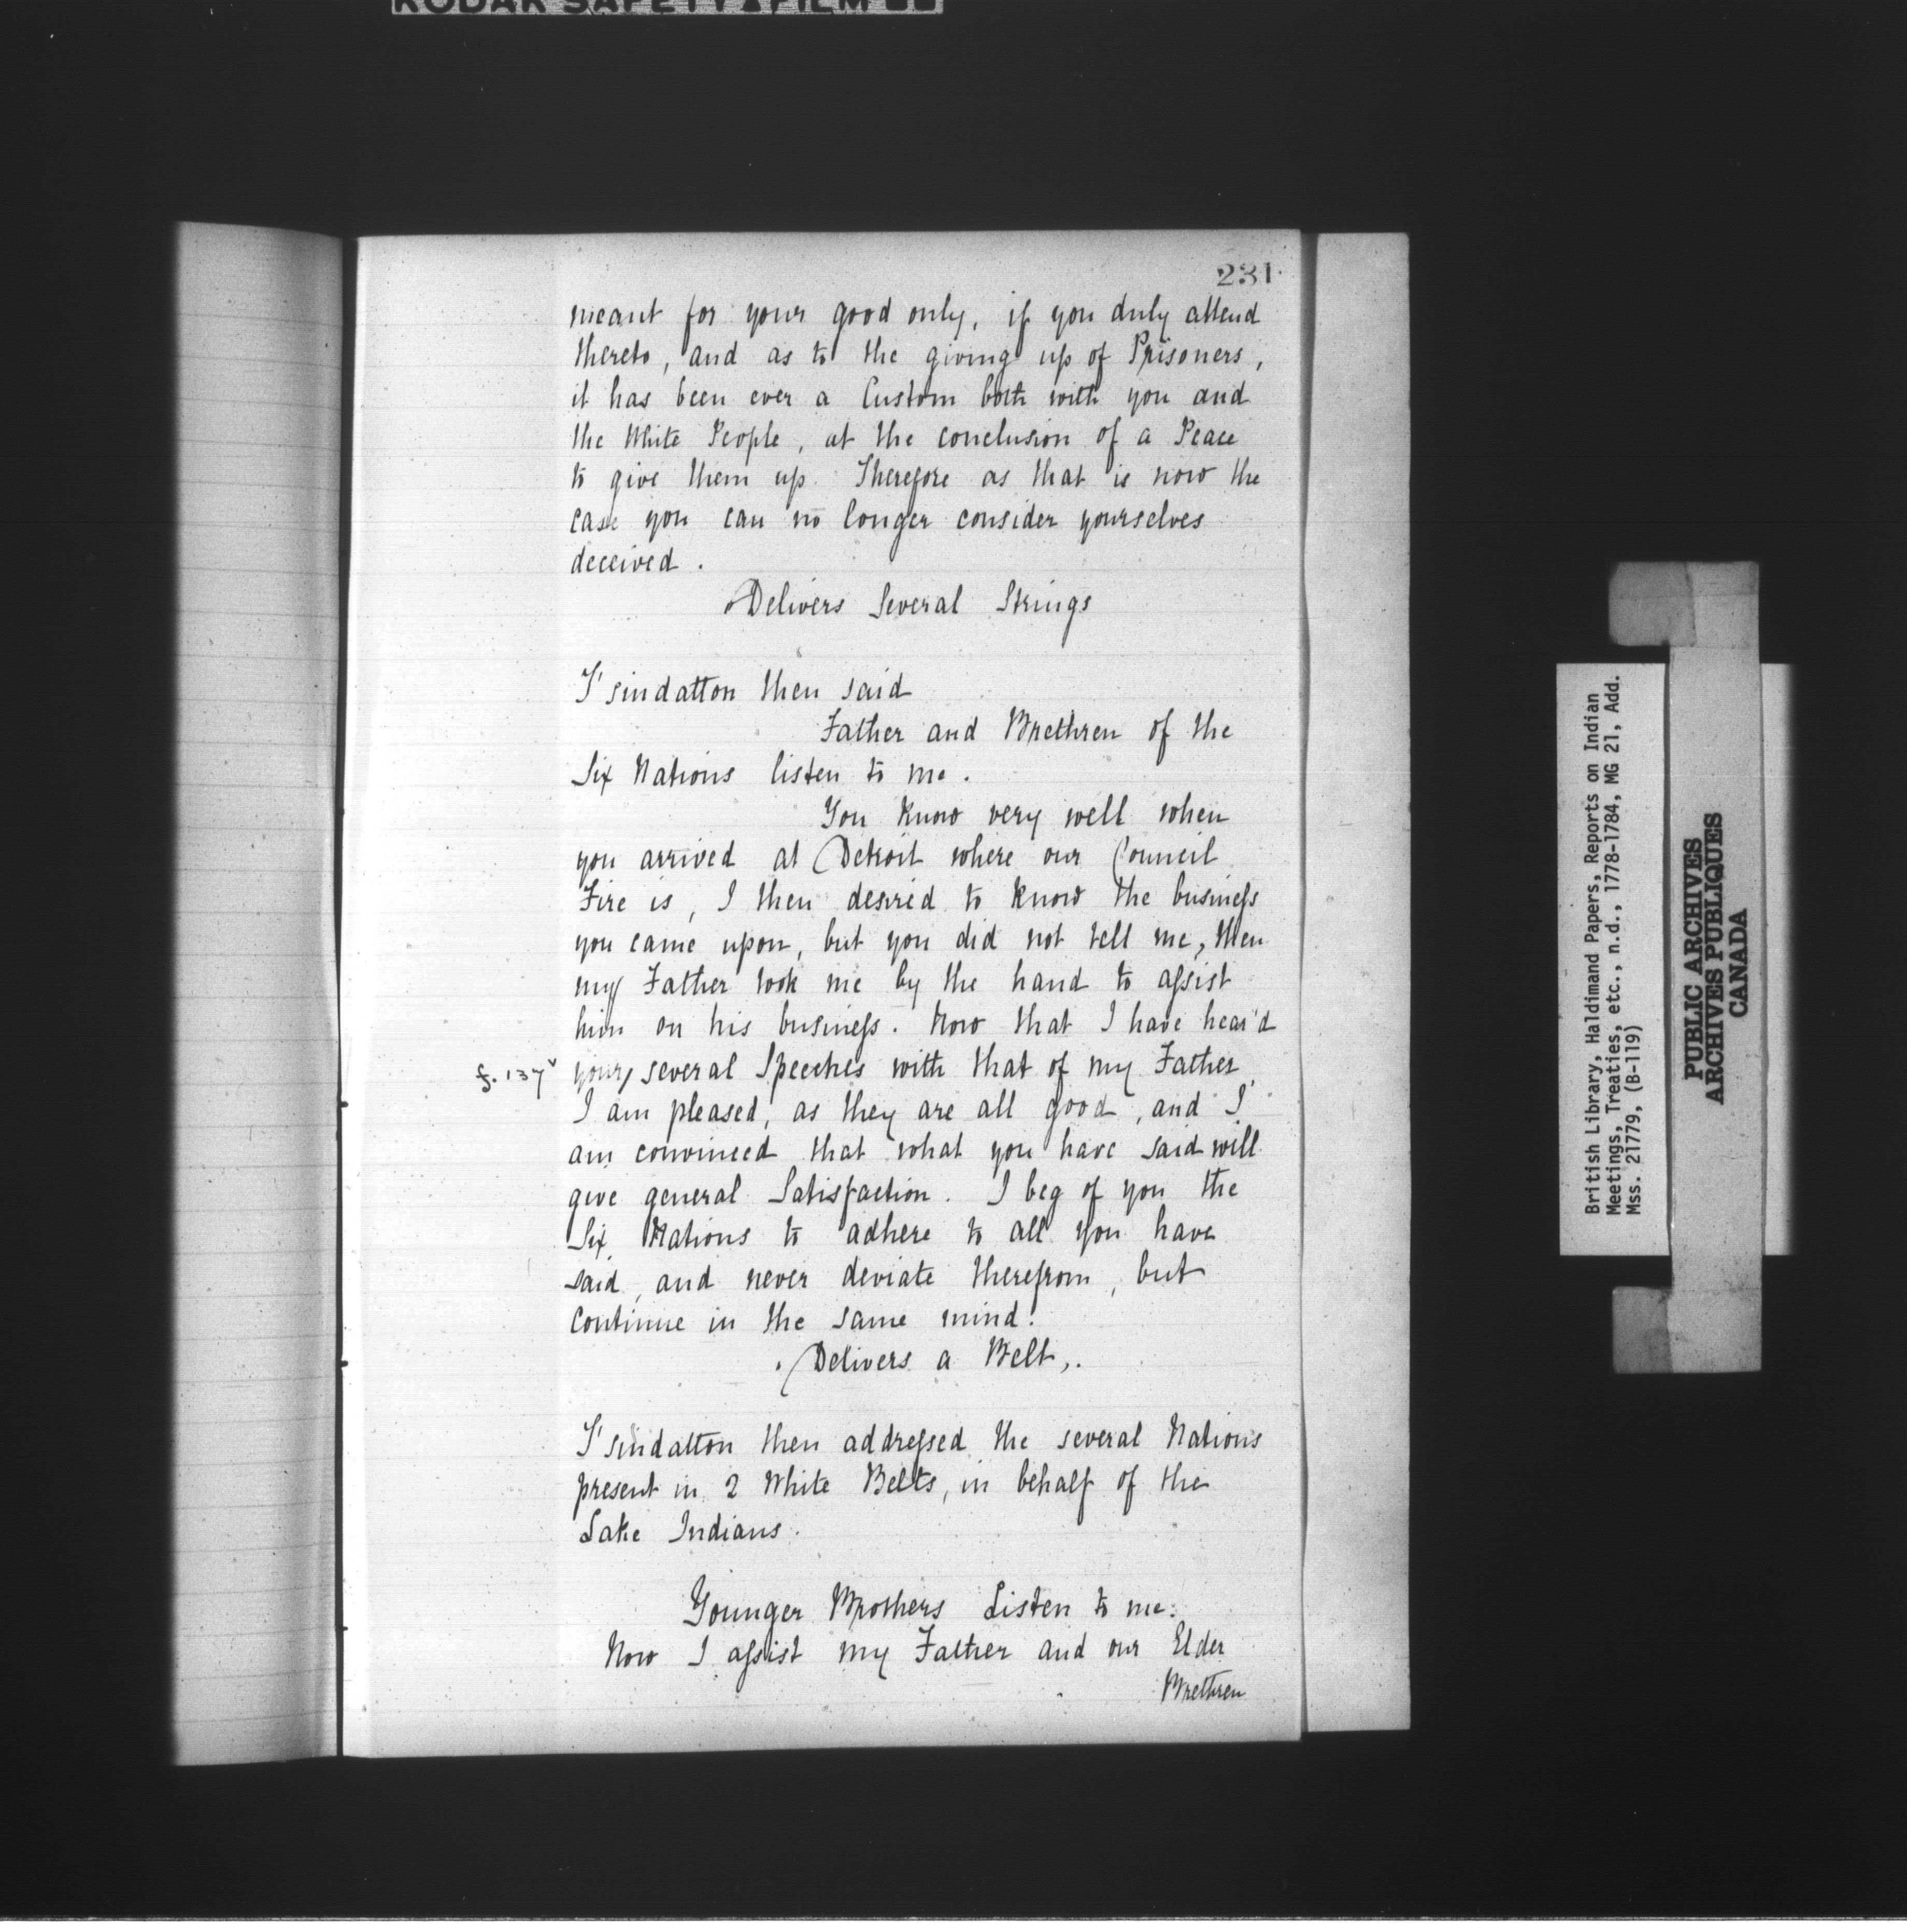 KODAK SAFETY FILM
231
meant for your good only, if you duly attend
thereto, and as to the giving up of Prisoners,
it has been ever a Custom both with you and
the White People, at the conclusion of a Peace
to give them up. Therefore as that is now the
case you can no longer consider yourselves
deceived.
Delivers Several Strings
T'sindatton then said
Father and Brethren of the
Six Nations listen to me.
You know very well when
you arrived at Detroit where our Council
Fire is, I then desired to know the business
you came upon, but you did not tell me, then
my Father took me by the hand to assist
him on his business. Now that I have hear'd
f. 137v your several Speeches with that of my Father,
I am pleased, as they are all good, and I
am convinced that what you have said will
give general Satisfaction. I beg of you the
Six Nations to adhere to all you have
said, and never deviate therefrom, but
continue in the same mind.
Delivers a Belt,.
T'sindatton then addressed the several Nations
present in 2 White Belts, in behalf of the
Lake Indians.
Younger Brothers Listen to me.
Now I assist my Father and our Elder
Brethren
British Library, Haldimand Papers, Reports on Indian
Meetings, Treaties, etc., n.d., 1778-1784, MG 21, Add.
Mss. 21779, (B-119)
PUBLIC ARCHIVES
ARCHIVES PUBLIQUES
CANADA